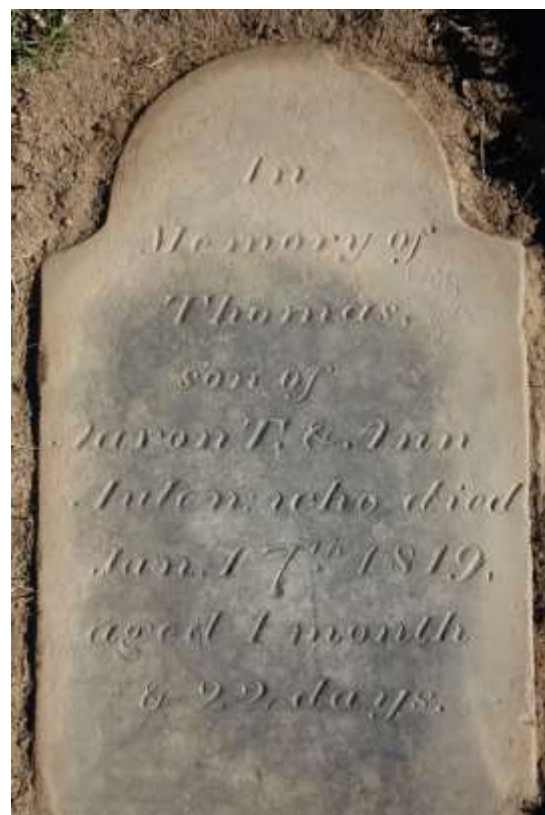 In
Memory of
Thomas,
son of
Aaron T. & Ann
Auten, who died
Jan. 17th 1819,
aged 1 month
& 22 days.